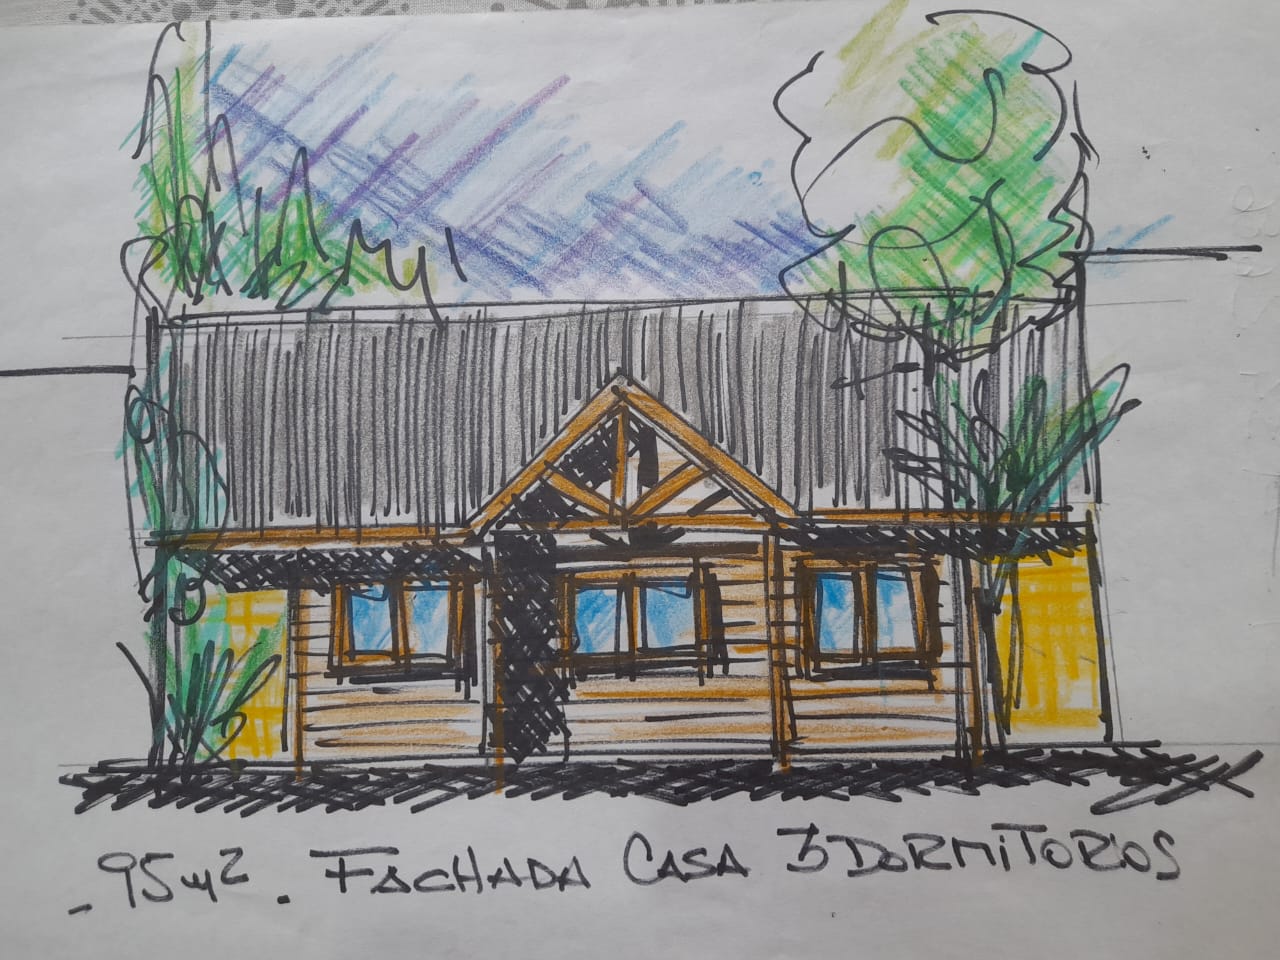 - 95m². FACHADA CASA 3 DORMITORIOS